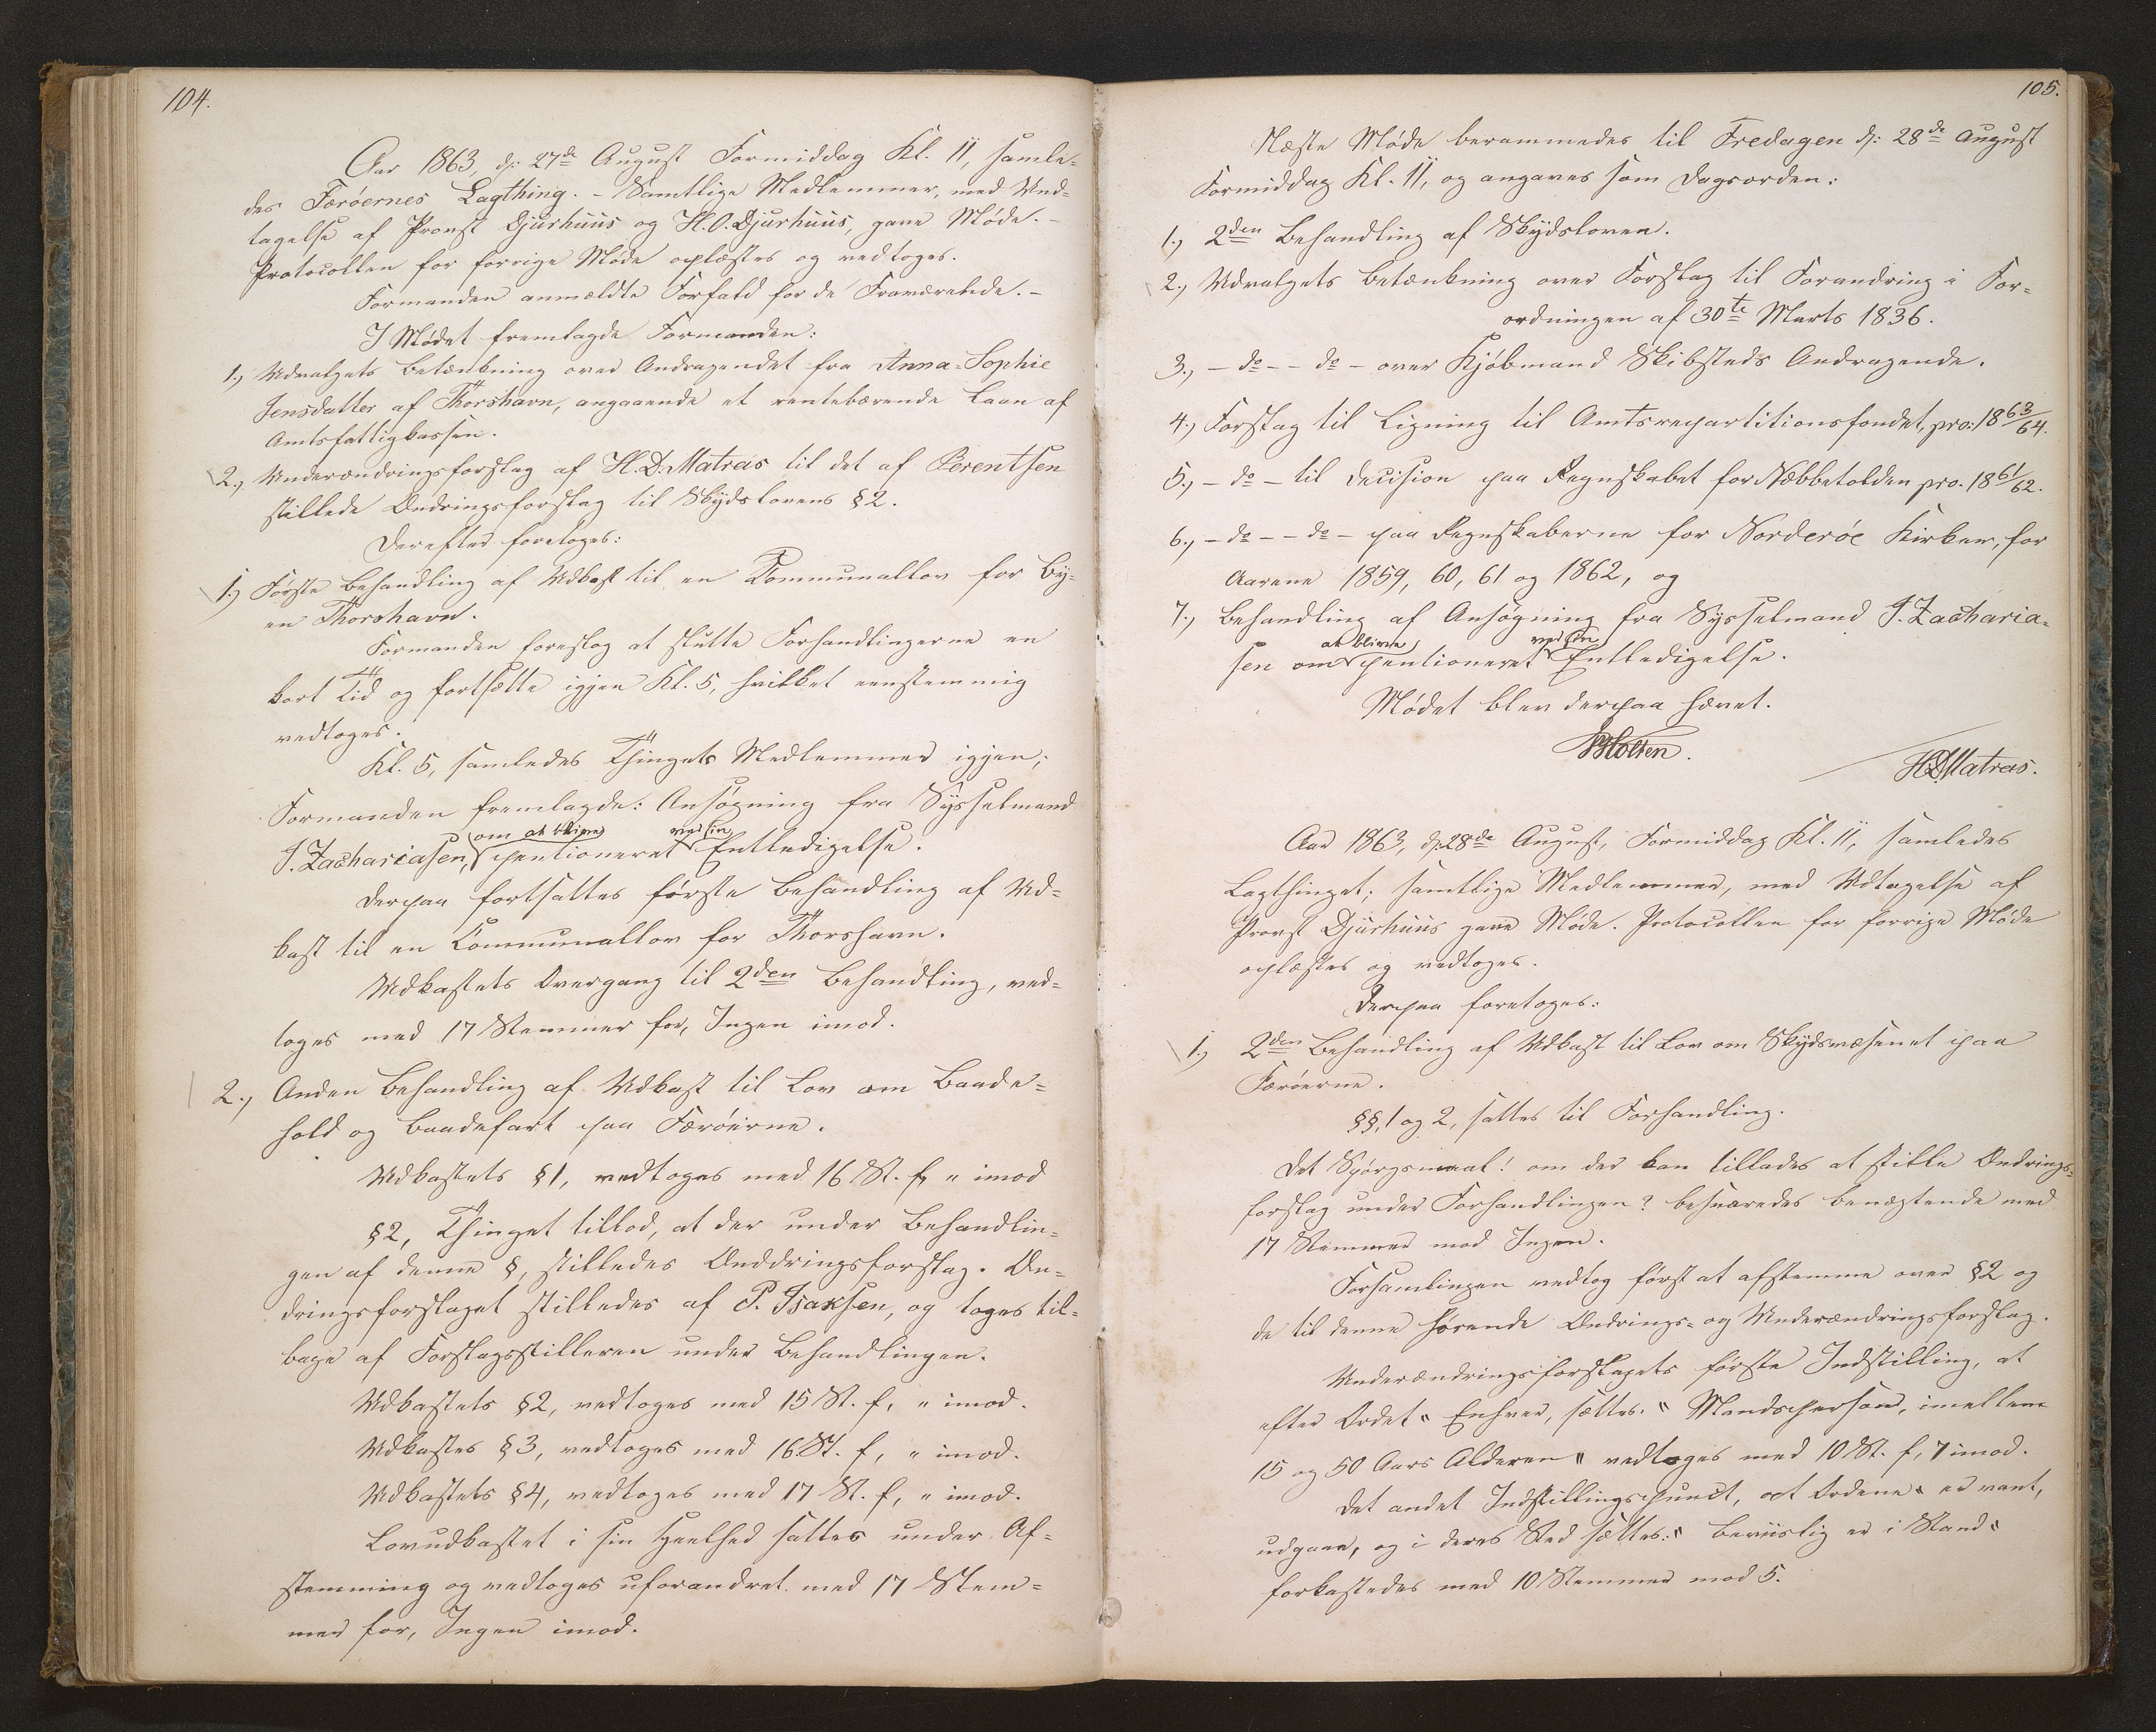 104.
Aar 1863, d: 27de August Formiddag Kl. 11, samle-
des Færöernes Lagthing. - Samtlige Medlemmer, med Und-
tagelse af Provst Djurhuus og H. O. Djurhuus, gave Møde. -
Protocollen for forrige Møde oplæstes og vedtoges.
Formanden anmeldte Forfald for de Fraværende. -
I Mødet fremlagde Formanden:
1., Udvalgets Betænkning over Andragendet fra Anna-Sophie
Jensdatter af Thorshavn, angaaende et rentebærende Laan af
Amtsfattigkassen.
2., Underændringsforslag af H. D. Matras til det af Berentsen
stillede Ændringsforslag til Skydslovens § 2.
Derefter foretoges:
1.) Første Behandling af Udkast til en Communallov for By-
en Thorshavn.
Formanden foreslog at slutte Forhandlingerne en
kort Tid og fortsætte igjen Kl. 5, hvilket eenstemmig
vedtoges.
Kl. 5, samledes Thingets Medlemmer igjen;
Formanden fremlagde: Ansøgning fra Sysselmand
J. Zachariasen, om at blive pentioneret ved sin Entledigelse.
Derpaa fortsattes første Behandling af Ud-
kast til en Communallov for Thorshavn.
Udkastets Overgang til 2den Behandling, ved-
toges med 17 Stemmer for, Ingen imod.
2., Anden Behandling af Udkast til Lov om Baade-
hold og Baadefart paa Færöerne.
Udkastets § 1, vedtoges med 16 St. f, " imod
§ 2, Thinget tillod, at der under Behandlin-
gen af denne §, stilledes Ænddringsforslag. Æn-
dringsforslaget stilledes af P. Isaksen, og toges til-
bage af Forslagsstilleren under Behandlingen.
Udkastets § 2, vedtoges med 15 St. f, " imod.
Udkastes § 3, vedtoges med 16 St. f, " imod.
Udkastets § 4, vedtoges med 17 St. f, " imod.
Lovudkastet i sin Heelhed sattes under Af-
stemming og vedtoges uforandret med 17 Stem-
mer for, Ingen imod.
105.
Næste Møde berammedes til Fredagen d: 28de August
Formiddag Kl. 11, og angaves som Dagsorden:
1., 2den Behandling af Skydsloven.
2., Udvalgets Betænkning over Forslag til Forandring i For-
ordningen af 30te Marts 1836.
3., - do - - do - over Kjøbmand Skibsteds Andragende.
4., Forslag til Ligning til Amtsrepartitionsfondet, pro: 1863/64.
5., - do - til Decision paa Regnskabet for Næbbetolden pro. 1861/62.
6., - do - - do - paa Regnskaberne for Norderöe Kirker, for
Aarene 1859, 60, 61 og 1862, og
7., Behandling af Ansøgning fra Sysselmand J. Zacharia-
sen om at blive pentioneret ved sin Entledigelse.
Mødet blev derpaa hævet.
Holten.
HDMatras.
Aar 1863, d: 28de August, Formiddag Kl. 11, samledes
Lagthinget; samtlige Medlemmer, med Udtagelse af
Provst Djurhuus gave Møde. Protocollen for forrige Møde
oplæstes og vedtoges.
Derpaa foretoges:
1., 2den Behandling af Udkast til Lov om Skydsvæsenet paa
Færöerne.
§§, 1 og 2, sattes til Forhandling.
Det Spørgsmaal! om der kan tillades at stille Ændrings-
forslag under Forhandlingen? besvaredes benægtende med
17 Stemmer mod Ingen.
Forsamlingen vedtog først at afstemme over § 2 og
de til denne hørende Ændrings- og Underændringsforslag.
Underændringsforslagets første Indstilling, at
efter Ordet " Enhver, sættes: " Mandsperson, imellem
15 og 50 Aars Alderen " vedtoges med 10 St. f, 7 imod.
Det andet Indstillingspunct, at Ordene " er vant,
udgaae, og i deres Sted sættes: " beviislig er i Stand "
forkastedes med 10 Stemmer mod 5.